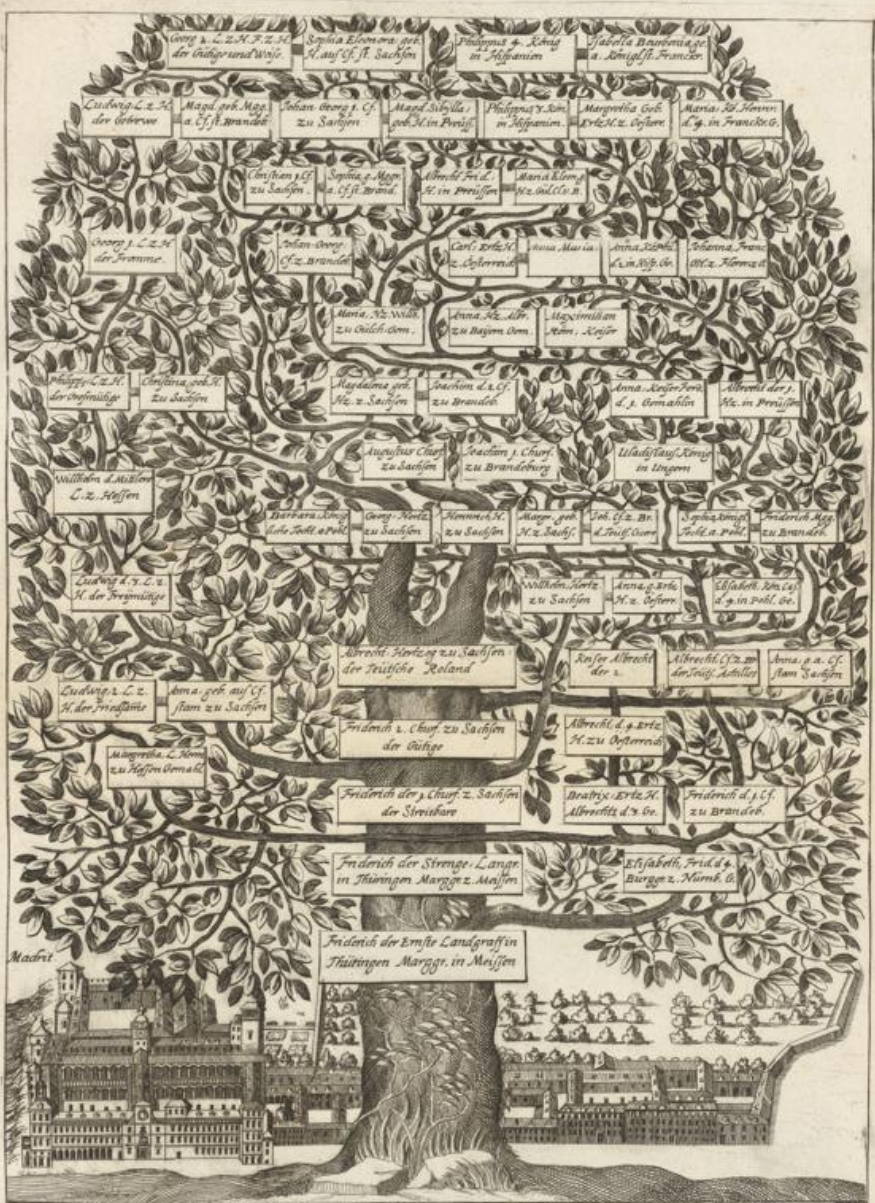 Georg 2. L. z. H. F. z. H.
der Gütige und Weise.
Sophia Eleonora geb.
H. aus Cf. st. Sachsen
Philippus 4. König
in Hispanien
Isabella Bourbonia ge.
a. Königl. st. Franckr.
Ludwig L. z. H.
der Getrewe
Magd. geb. Mgg.
a. Cf. st. Brandeb.
Johan Georg 1. Cf.
zu Sachsen
Magd. Sibylla
geb. H. in Preüss.
Philippus 3. Kön.
in Hispanien.
Margretha Geb.
Ertz H. z. Oesterr.
Maria, Kö. Henri:
d. 4. in Franckr. G.
Christian 1. Cf.
zu Sachsen.
Sophia g. Mggr.
a. Cf. st. Brand.
Albrecht Frid:
H. in Preüssen
Maria Eleon. g.
Hz. Gül. Cl. v. B.
Georg 1. L. z. H.
der Fromme.
Johan Georg
Cf. z. Brandeb.
Carl: Ertz H.
z. Oesterreich
Anna Maria
Anna, Kö. Phil.
d. 2. in Hisp. Ge.
Johanna, Franc.
Ott. z. Florenz G.
Maria, Hz. Wilh.
zu Gülch: Gem.
Anna, Hz. Albr.
zu Bayern Gem.
Maximilian
Röm: Keiser
Philipps: L. z. H.
der Grosmütige
Christina, geb. H.
zu Sachsen
Magdalena geb.
Hz. z. Sachsen
Joachim d. 2. Cf.
zu Brandeb.
Anna: Keiser Ferd.
d. 1. Gemahlin
Albrecht der 1.
Hz. in Preüssen
Augustus Churf.
zu Sachsen
Joachim 1. Churf.
zu Brandeburg
Uladislaus König
in Ungern
Willhelm d. Mitlere
L. z. Hessen
Barbara König
liche Tocht. a Pohl.
Georg: Hertz.
zu Sachsen
Hennrich H.
zu Sachsen
Margr. geb.
H. z. Sachs.
Joh. Cf. z. Br.
d. Teütsch. Cicero
Sophia Königl.
Tocht. a. Pohl.
Friderich Mgg.
zu Brandeb.
Ludwig d. 3. L. z.
H. der Freymütige
Willhelm, Hertz
zu Sachsen
Anna g. Ertz
H. z. Oesterr.
Elisabeth, Kön. Cas.
d. 4. in Pohl. Ge.
Albrecht: Hertzog zu Sachsen:
der Teütsche Roland
Keiser Albrecht
der 2
Albrecht. Cf. z. Br.
der Teütsch. Achilles
Anna: g. a. Cf.
stam Sachsen
Ludwig 2. L. z.
H. der Friedsame
Anna: geb. aus Cf.
stam zu Sachsen
Friderich 2. Churf. zu Sachsen
der Gütige
Albrecht. d. 4. Ertz
H. zu Oesterreich
Margretha L. Herm.
zu Hessen Gemahl.
Friderich der 1 Churf. z. Sachsen
der Streitbare
Beatrix: Ertz H.
Albrechts d. 3. Ge.
Friderich d. 1. Cf.
zu Brandeb.
Friderich der Strenge: Langr.
in Thüringen Marggr. z. Meissen
Elisabeth, Frid. d. 4.
Burggr. z. Nürnb. G.
Friderich der Ernste Landgraff in
Thüringen Marggr. in Meissen
Madrit